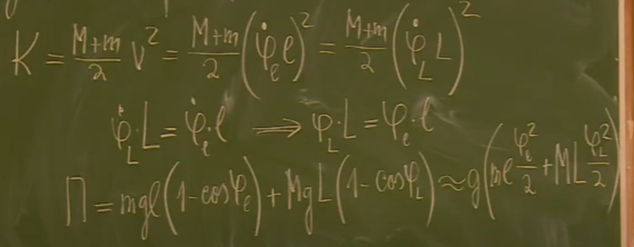 K = \frac{M+m}{2} v^2 = \frac{M+m}{2} (\dot{φ}_e ℓ)^2 = \frac{M+m}{2} (\dot{φ}_L L)^2
\dot{φ}_L · L = \dot{φ}_e · ℓ ⟹ φ_L · L = φ_e · ℓ
Π = mgℓ(1 - cosφ_e) + MgL(1 - cosφ_L) ≈ g(mℓ \frac{φ_e^2}{2} + ML \frac{φ_L^2}{2})